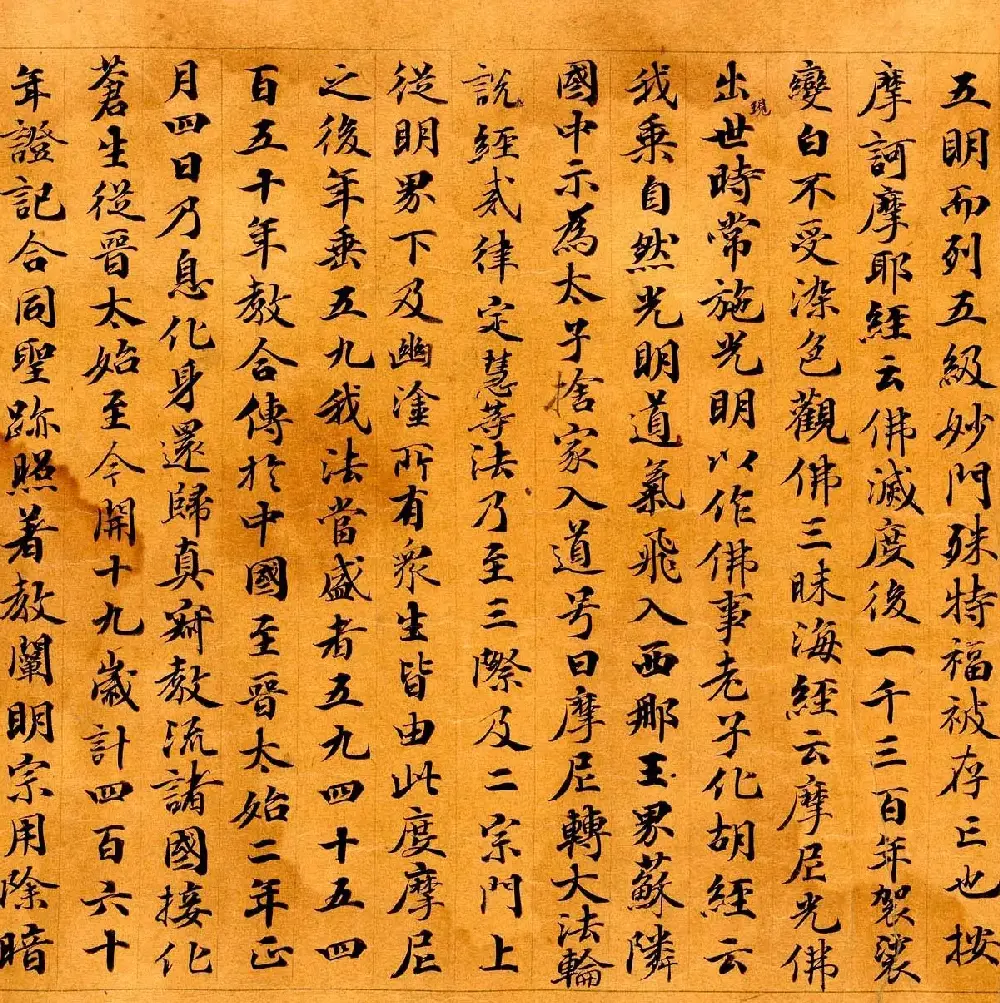 五明而列五級妙門殊特福被存亡也按
摩訶摩耶經云佛滅度後一千三百年袈裟
變白不受染色觀佛三昧海經云摩尼光佛
出現世時常施光明以作佛事老子化胡經云
我乘自然光明道氣飛入西那玉界蘇隣
國中示為太子捨家入道号曰摩尼轉大法輪
說經戒律定慧等法乃至三際及二宗門上
從明界下及幽塗所有衆生皆由此度摩尼
之後年垂五九我法當盛者五九四十五四
百五十年教合傳於中國至晉太始二年正
月四日乃息化身還歸真寂教流諸國接化
蒼生從晉太始至今開十九歲計四百六十
年證記合同聖跡照著教闡明宗用除暗